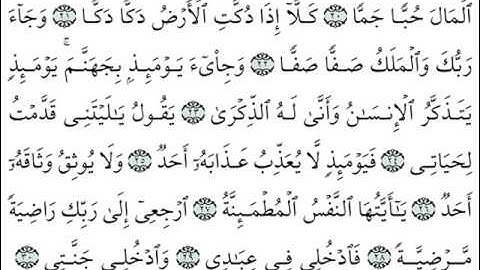 ٱلْمَالَ حُبًّا جَمًّا ٢٠ كَلَّآ إِذَا دُكَّتِ ٱلْأَرْضُ دَكًّا دَكًّا ٢١ وَجَآءَ
رَبُّكَ وَٱلْمَلَكُ صَفًّا صَفًّا ٢٢ وَجِا۟ىٓءَ يَوْمَئِذٍۭ بِجَهَنَّمَ ۚ يَوْمَئِذٍ
يَتَذَكَّرُ ٱلْإِنسَٰنُ وَأَنَّىٰ لَهُ ٱلذِّكْرَىٰ ٢٣ يَقُولُ يَٰلَيْتَنِى قَدَّمْتُ
لِحَيَاتِى ٢٤ فَيَوْمَئِذٍ لَّا يُعَذِّبُ عَذَابَهُۥٓ أَحَدٌ ٢٥ وَلَا يُوثِقُ وَثَاقَهُۥٓ
أَحَدٌ ٢٦ يَٰٓأَيَّتُهَا ٱلنَّفْسُ ٱلْمُطْمَئِنَّةُ ٢٧ ٱرْجِعِىٓ إِلَىٰ رَبِّكِ رَاضِيَةً
مَّرْضِيَّةً ٢٨ فَٱدْخُلِى فِى عِبَٰدِى ٢٩ وَٱدْخُلِى جَنَّتِى ٣٠